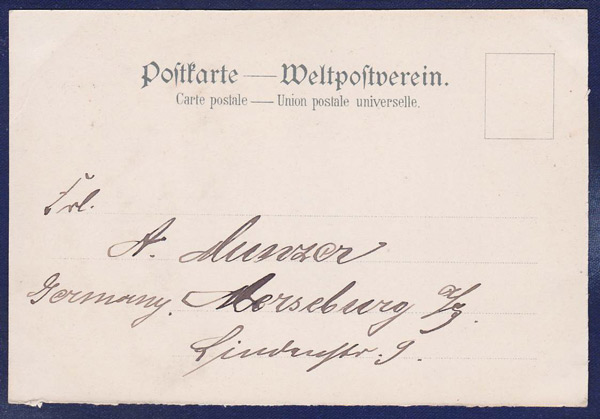 Postkarte — Weltpostverein.
Carte postale — Union postale universelle.
Frl.
A. Munzer
Germany. Merseburg a/S.
Lindenstr. 9.